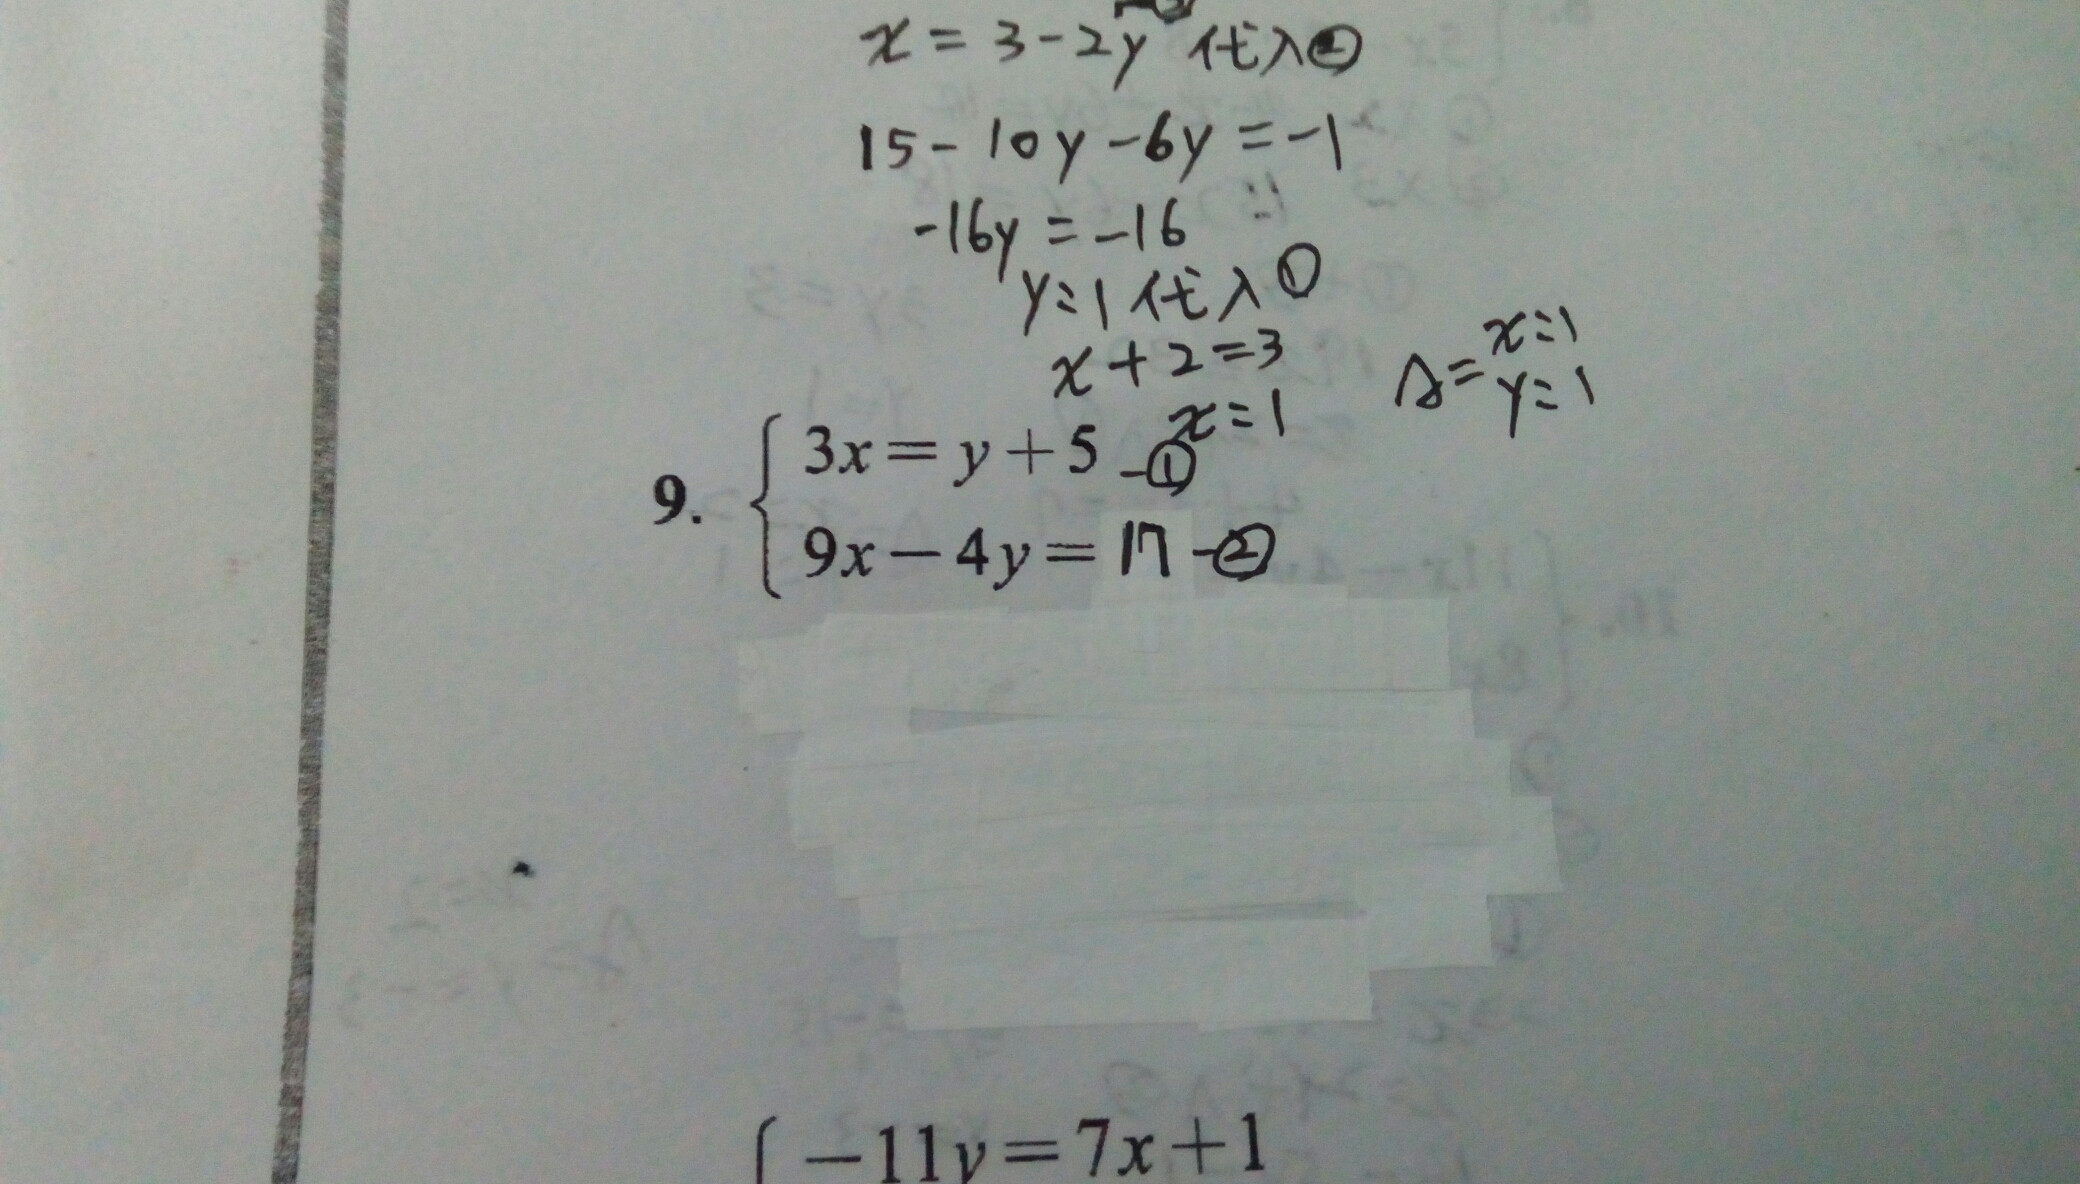 x=3-2y 代入②
15-10y-6y=-1
-16y=-16
y=1 代入①
x+2=3
x=1
A= x=1
y=1
9. { 3x=y+5 -①
9x-4y=17 -②
{ -11y=7x+1